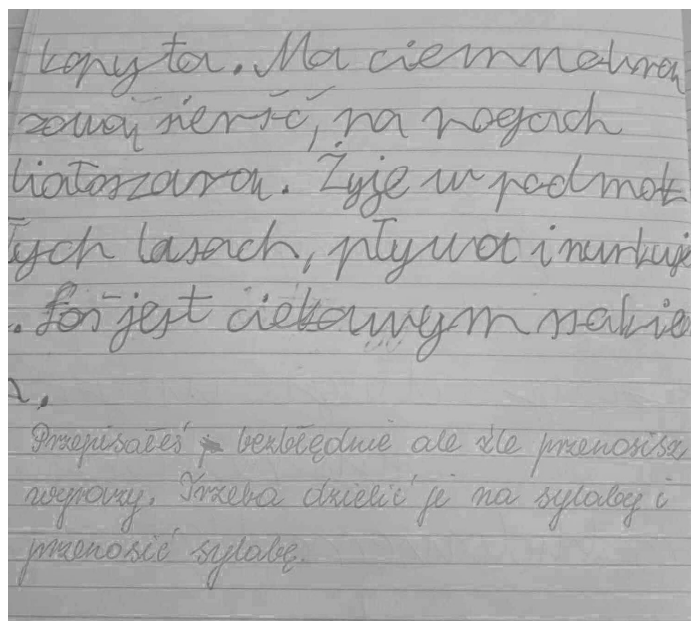 kopyta. Ma ciemnobrą
zową sierść, na nogach
białoszarą. Żyje w podmok
łych lasach, pływa i nurkuje
. Łoś jest ciekawym ssakie
Przepisałeś bezbłędnie ale źle przenosisz
wyrazy. Trzeba dzielić je na sylaby i
przenosić sylabę.